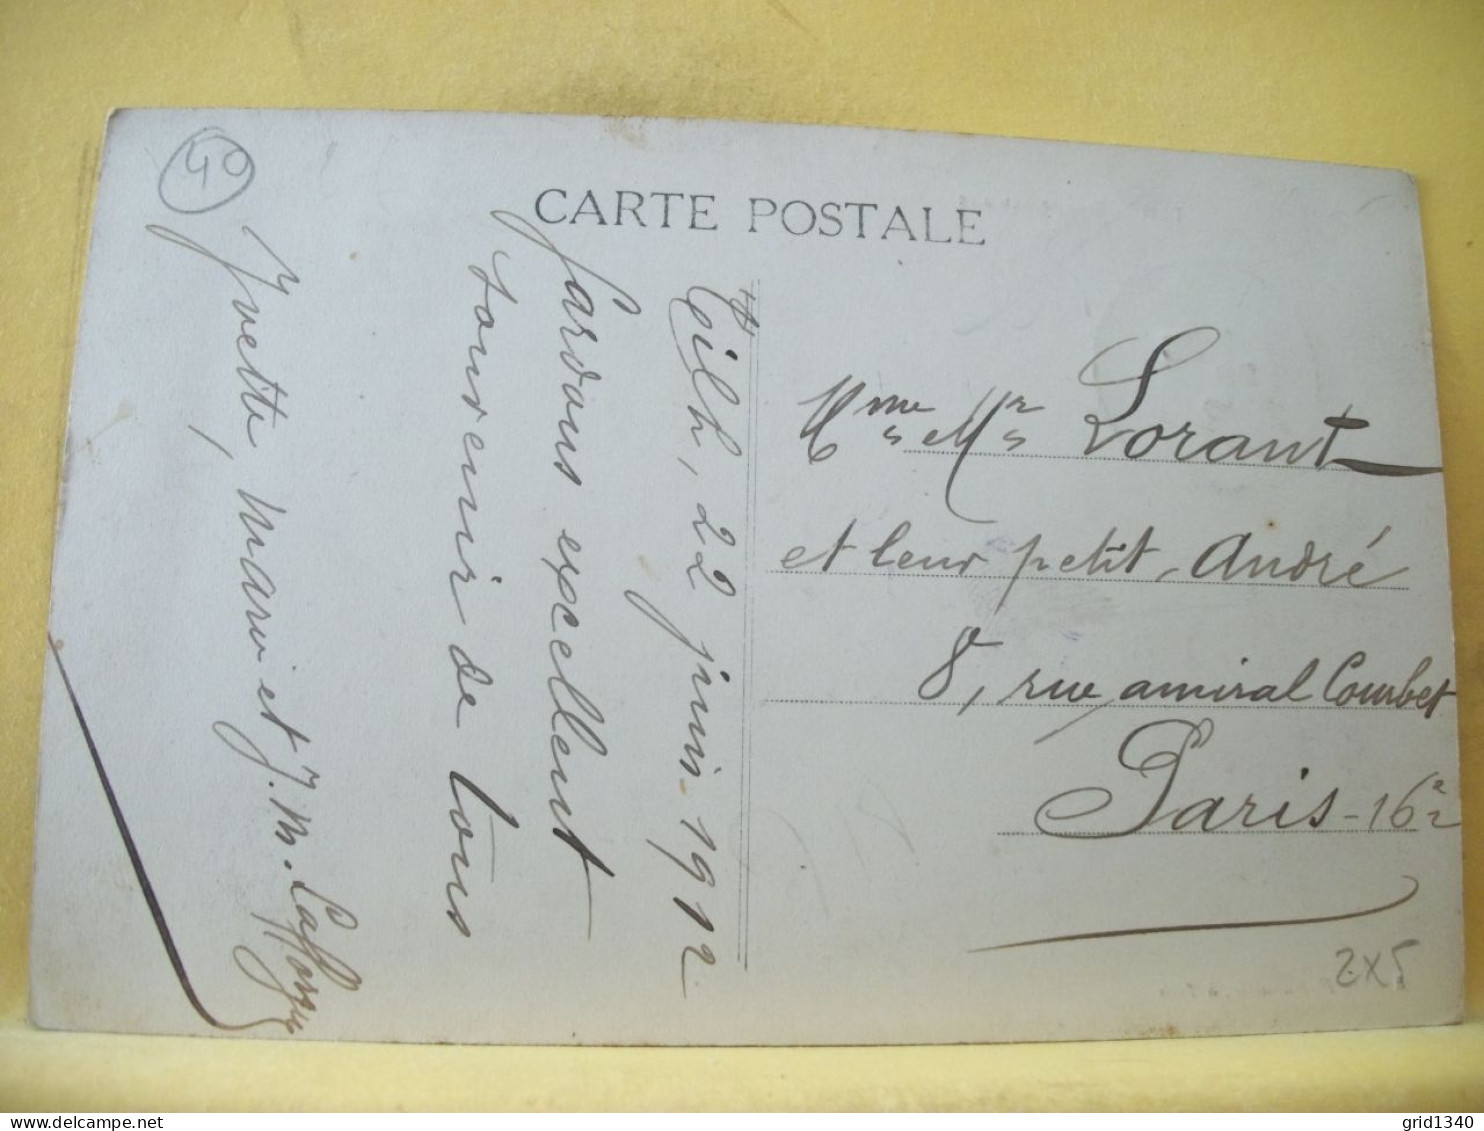 40
CARTE POSTALE
Tilh, 22 juin 1912
Gardons excellent
souvenir de tous
Yvette, Marie et J. M. Lafforgue
Mme & Mr Lorant
et leur petit André
8, rue amiral Courbet
Paris - 16e
2x5
grid1340